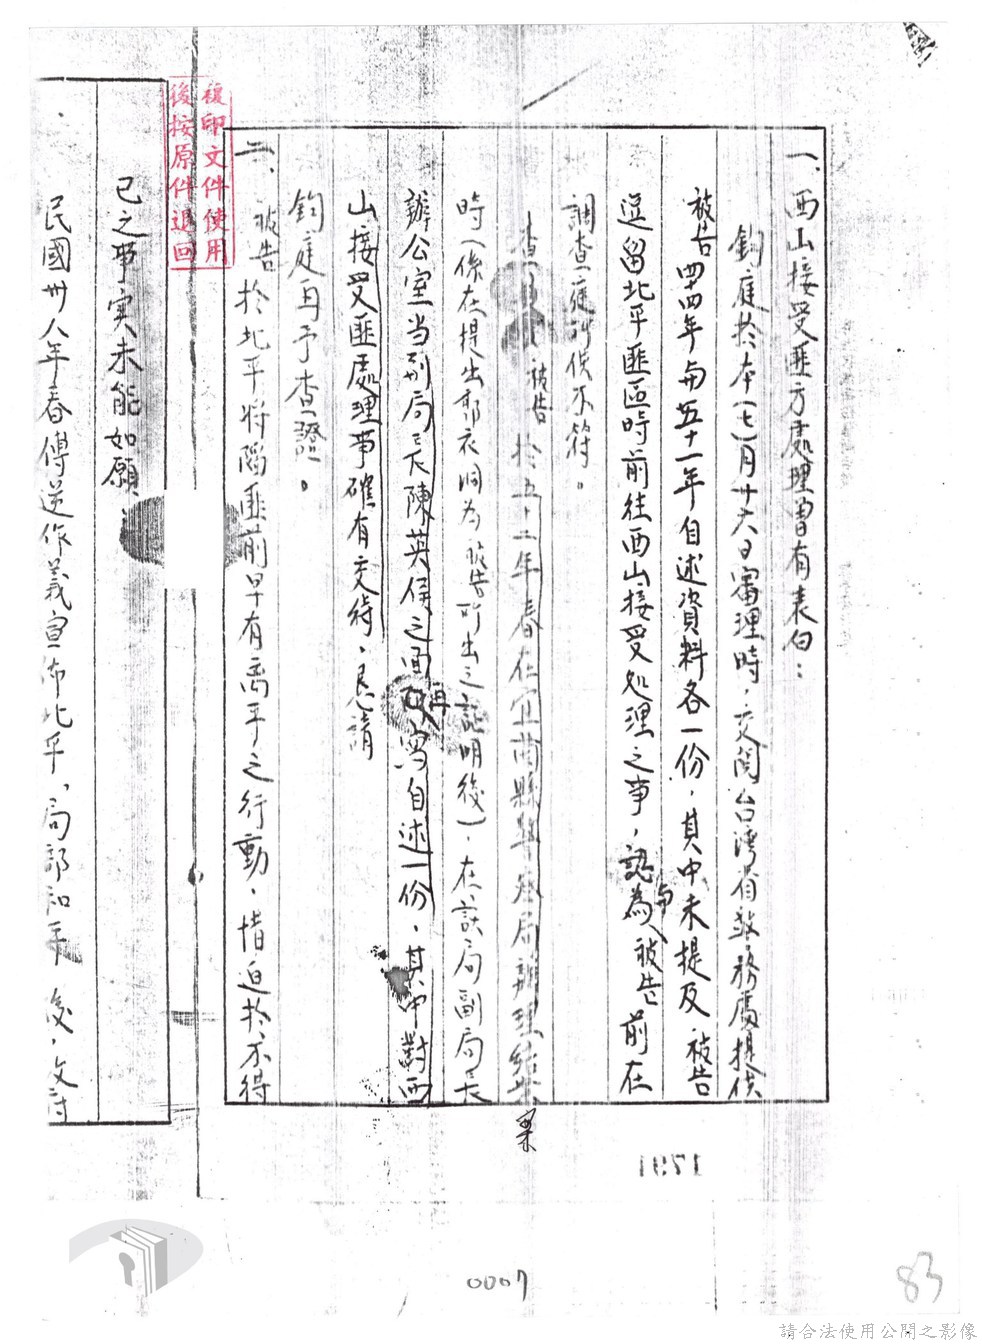 一、西山接受匪方處理曾有表白：
鈞庭於本(七)月廿六日審理時，交閱台灣省警務處提供
被告四四年與五十一年自述資料各一份，其中未提及被告
逗留北平匪區時前往西山接受処理之事，認為與被告前在
調查庭所供不符。
查 被告於五十一年春在宜蘭縣警察局辦理結案
時(係在提出郭衣洞為被告所出之証明後)，在該局副局長
辦公室当刑局長陳英俟之面再寫自述一份，其中對西
山接受匪處理事確有交待，懇請
鈞庭再予查證。
二、被告於北平將陷匪前早有离平之行動，惜迫於不得
已之事实未能如願，
民國卅八年春傅逆作義宣佈北平「局部和平」後，
複印文件使用
後按原件退回
1851
0007
83
請合法使用公開之影像